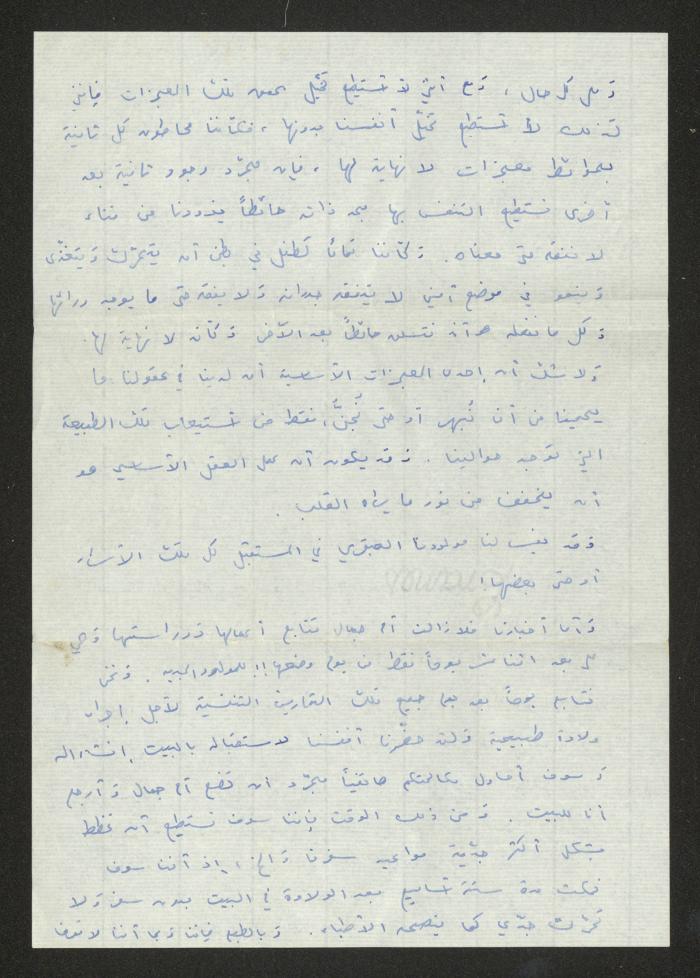 وعلى كل حال، ومع أنني لا أستطيع تخيل عمق تلك المعجزات فإنني
كذلك لا أستطيع تخيّل أنفسنا بدونها، فكأننا محاطون كل ثانية
بحوائط معجزات لا نهاية لها، فإن مجرّد وجود ثانية بعد
أخرى نستطيع التنفس بها بحد ذاته حائطاً يذودنا من فناء
لا نفقه حتى معناه. وكأننا تماماً كطفل في بطن أمه يتحرّك ويتغذّى
وينمو في موضع أمين لا يفقه جدرانه ولا يفقه حتى ما يوجد وراءها
وكل ما نفعله هو أن نتسلق حائطاً بعد الآخر وكأن لا نهاية لها.
ولا شك أن إحدى المعجزات الأساسية أن لدينا في عقولنا ما
يحمينا من أن نُبهر أو حتى نُجنَّ، فقط من استيعاب تلك الطبيعة
التي توجد حوالينا. وقد يكون أن عمل العقل الأساسي هو
أن يخفف من نور ما يراه القلب.
وقد يفسر لنا مولودنا العبقري في المستقبل كل تلك الأسرار
أو حتى بعضها!
وأما أخبارنا فلا زالت أم جمال تتابع أعمالها ودراستها وهي
على بعد اثنا عشر يوماً فقط من يوم وضعها!! للمولود الجديد. ونحن
نتابع يوماً بعد يوم جميع تلك التمارين التنفسية لأجل إجراء
ولادة طبيعية ولقد حضّرنا أنفسنا لاستقباله بالبيت إنشاء الله
وسوف أحاول مكالمتكم هاتفياً بمجرّد أن تضع أم جمال وأرجع
أنا للبيت. ومن ذلك الوقت فإننا سوف نستطيع أن نخطط
بشكل أكثر جدّية مواعيد سفرنا والخ، إذ أننا سوف
نمكث مدة ستة أسابيع بعد الولادة في البيت بدون سفر ولا
تحرّك جدّي كما ينصح الأطباء. وبالطبع فإننا وبما أننا لا نعرف